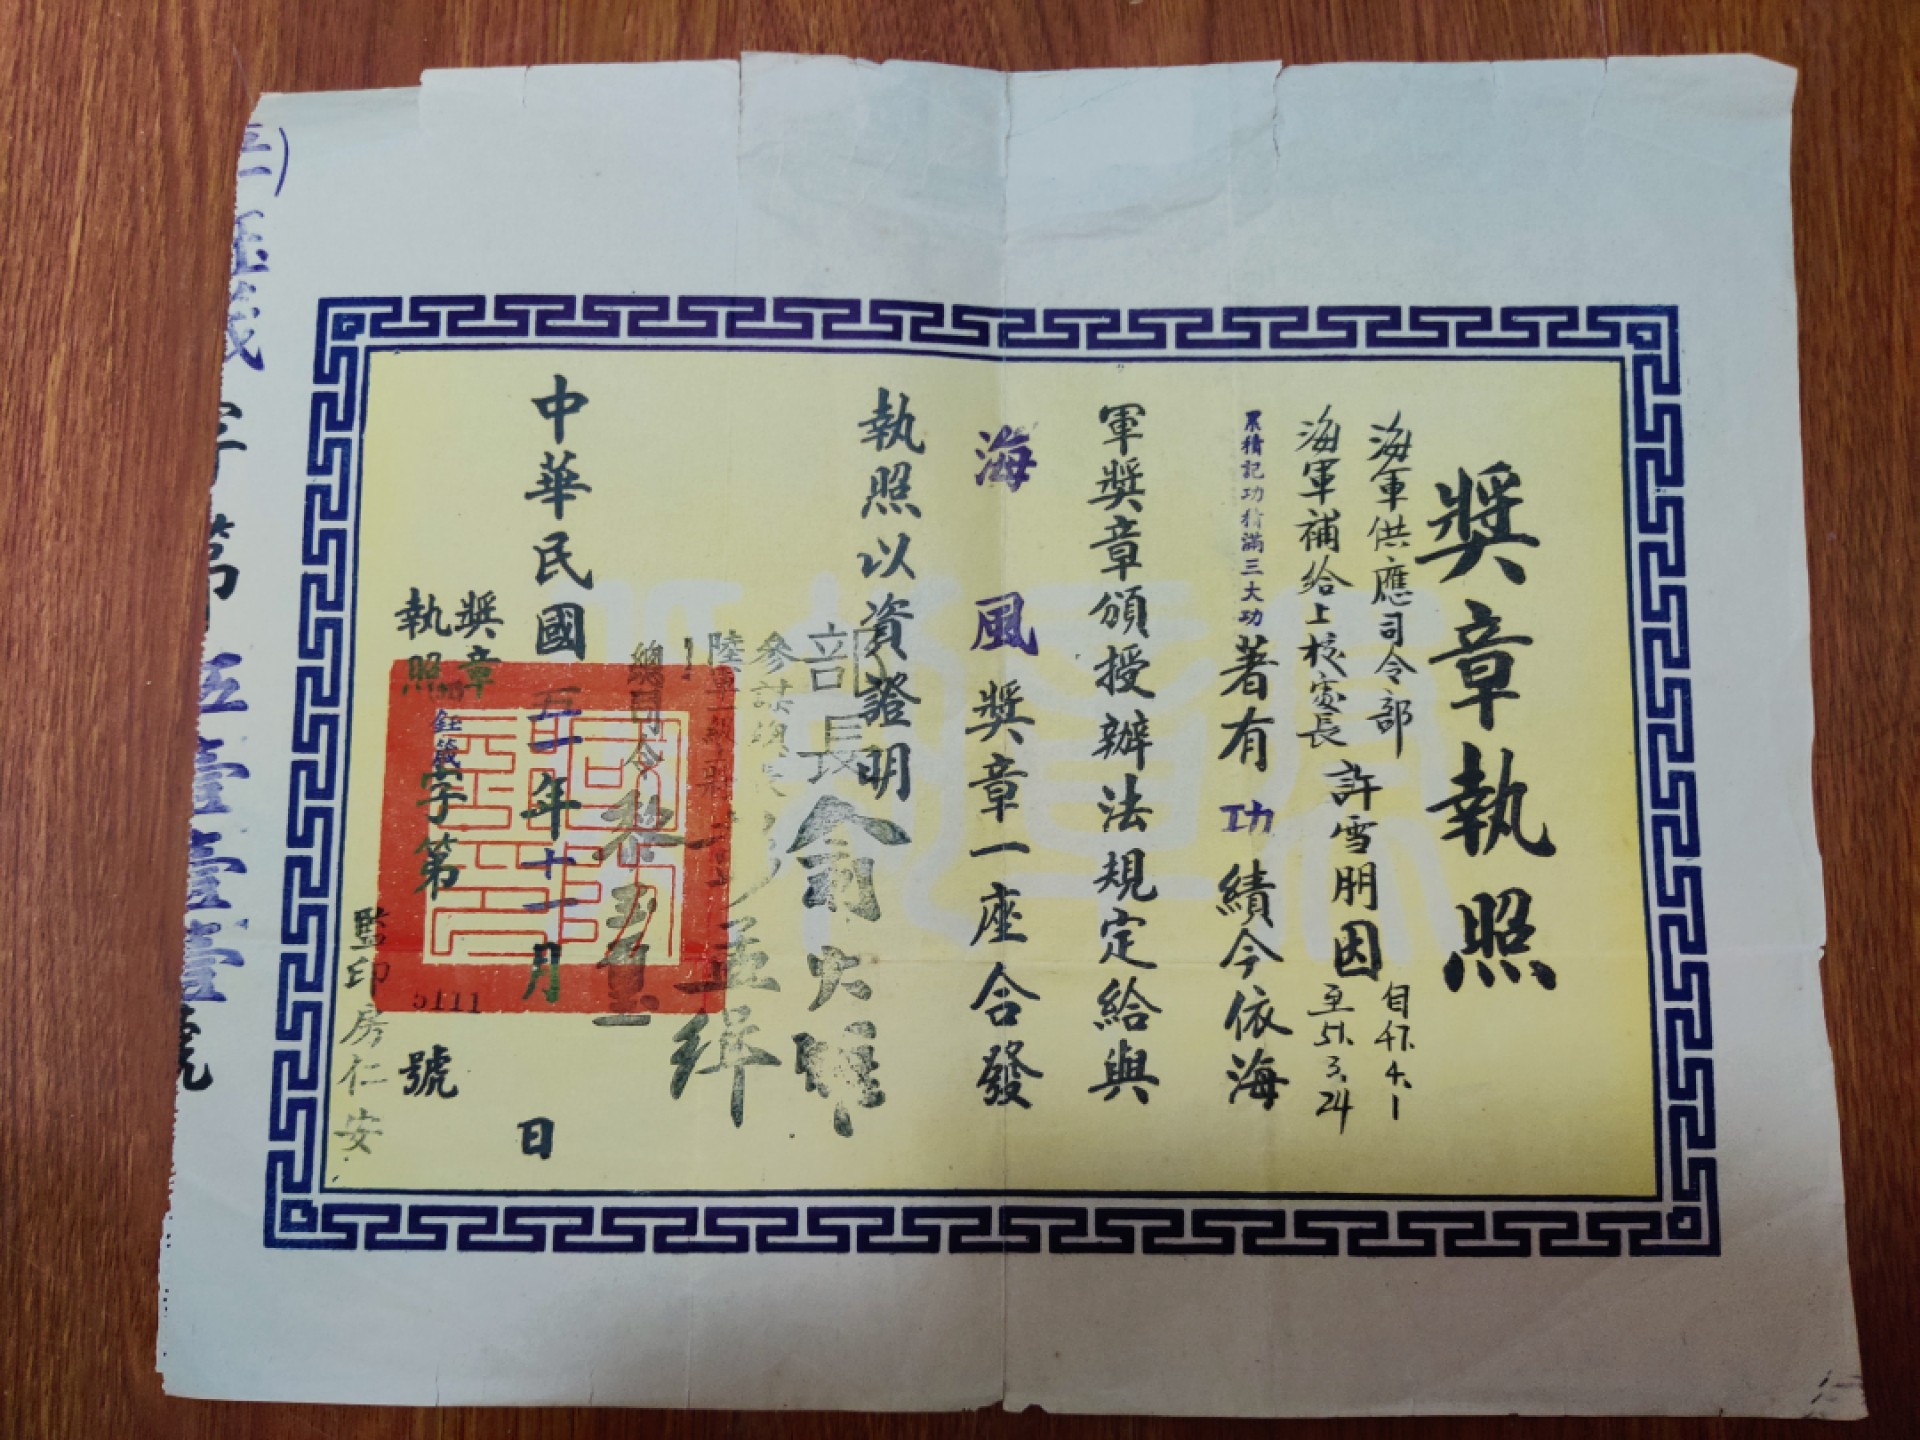 獎章執照
海軍供應司令部
海軍補給上校處長
許雪朋因
自47.4.1
至51.3.24
累積記功積滿三大功著有功績今依海
軍獎章頒授辦法規定給與
海風獎章一座合發
執照以資證明
部長俞大維
參謀總長
陸軍一級上將彭孟緝
總司令黎玉璽
中華民國五一年十一月 日
獎章
執照
鉦箴字第5111號
監印房仁安
字第伍壹壹壹號